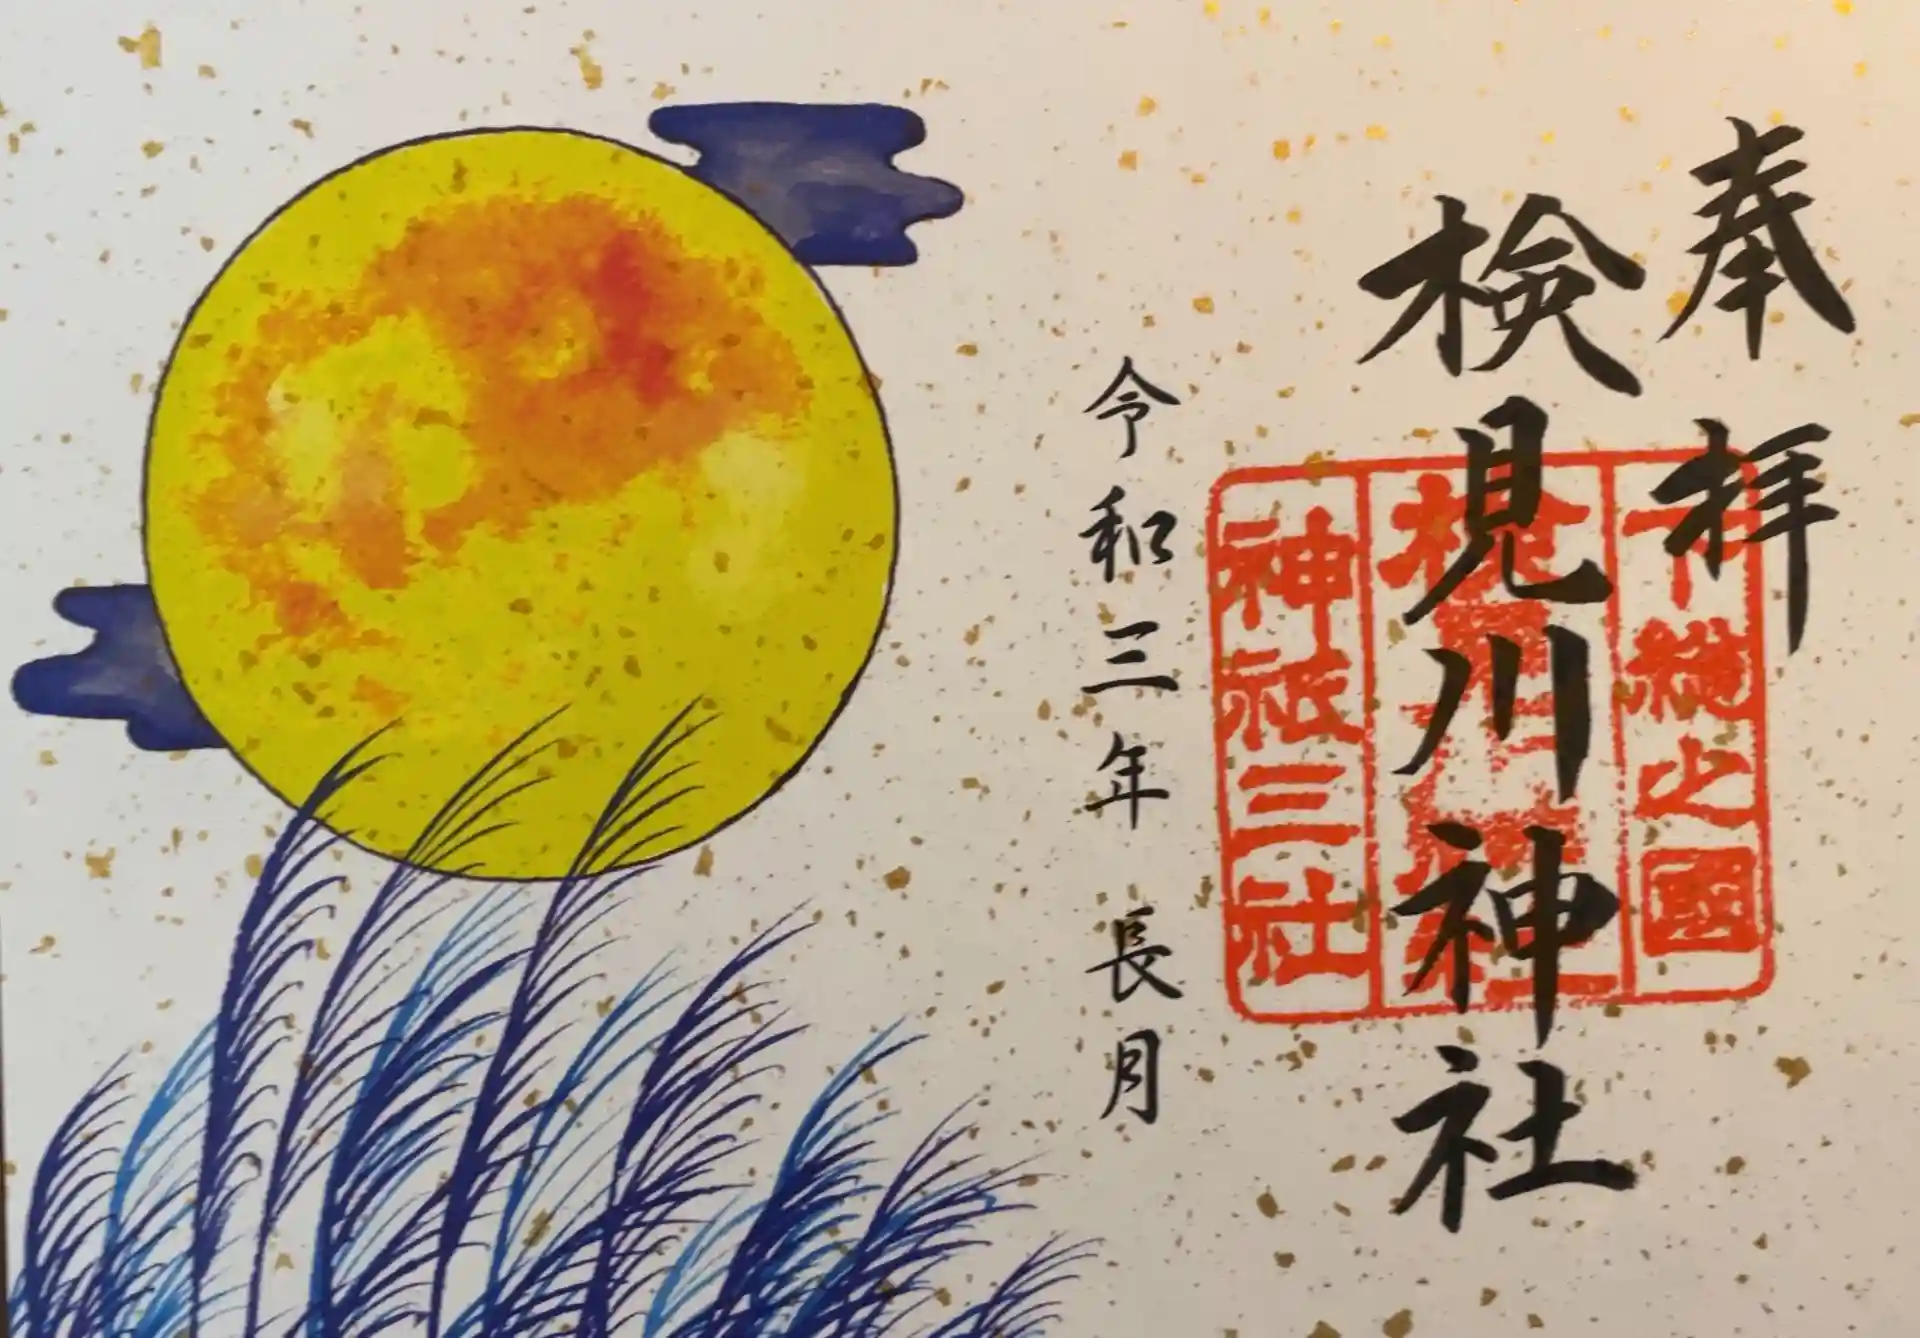 奉拝
検見川神社
下總之國
検見川神社
神祇三社
令和三年 長月